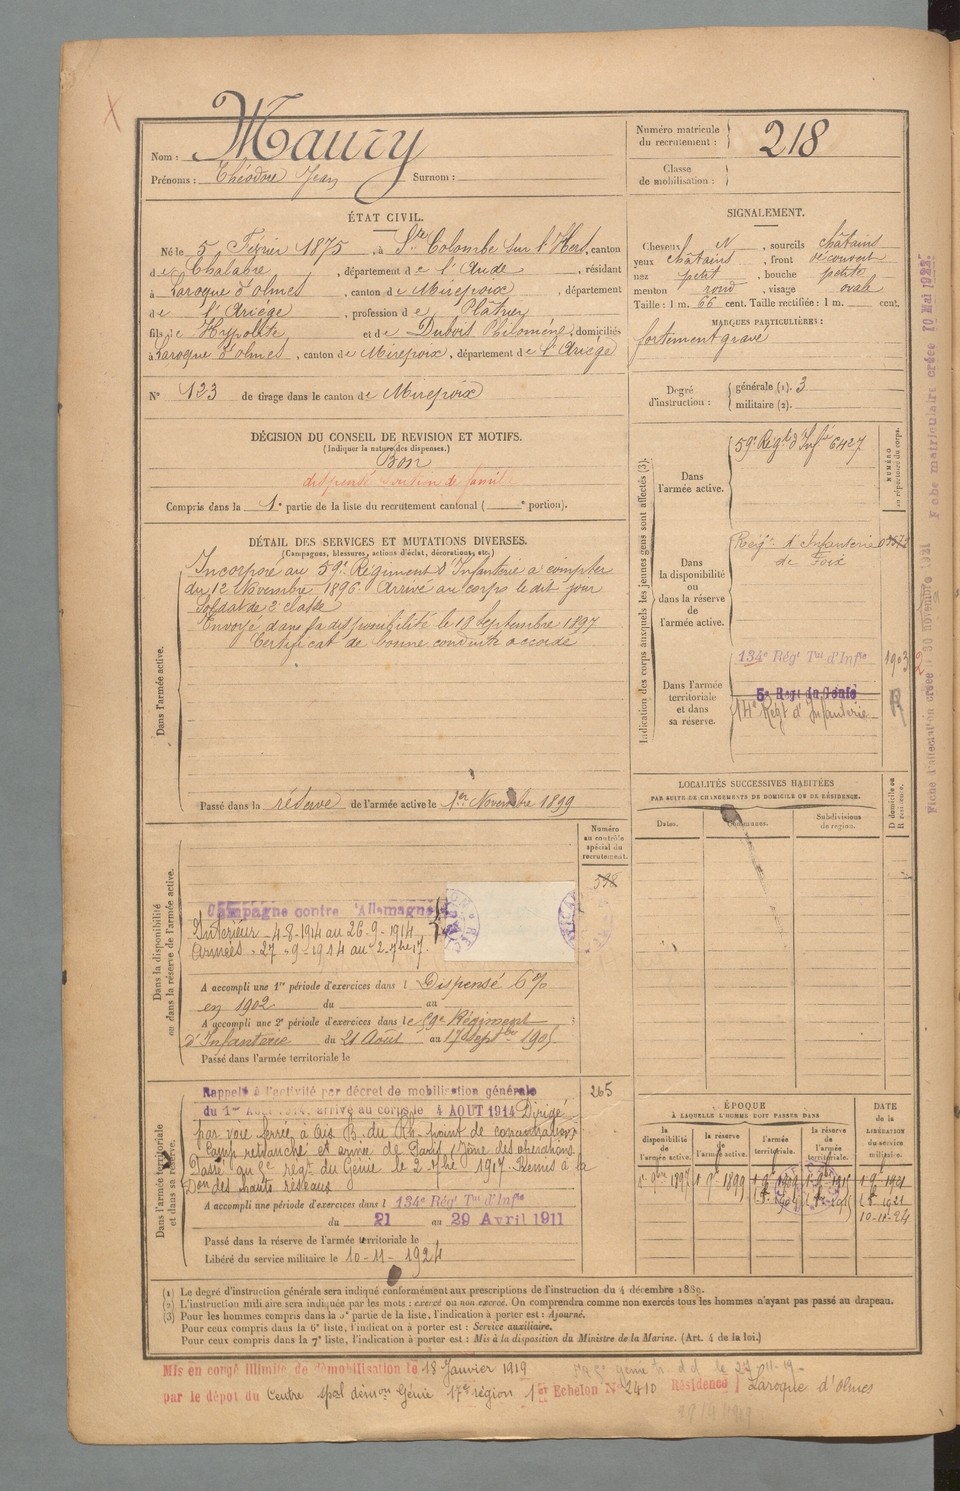 Nom : Maury
Prénoms : Théodore Jean Surnom :
Numéro matricule
du recrutement : 218
Classe
de mobilisation :
ÉTAT CIVIL.
Né le 5 Février 1875, à Ste Colombe sur l'Hers, canton
de Chalabre, département de l'Aude, résidant
à Laroque d'olmes, canton de Mirepoix, département
de l'Ariège, profession de Plâtrier
fils de Hypolite et de Dubois Philomène, domiciliés
à Laroque d'olmes, canton de Mirepoix, département de l'Ariège
N° 123 de tirage dans le canton de Mirepoix
SIGNALEMENT.
Cheveux N, sourcils châtains
yeux châtains, front découvert
nez petit, bouche petite
menton rond, visage ovale
Taille : 1 m. 66 cent. Taille rectifiée : 1 m. cent.
MARQUES PARTICULIÈRES :
fortement gravé
Degré
d'instruction :
générale (1). 3
militaire (2).
DÉCISION DU CONSEIL DE REVISION ET MOTIFS.
(Indiquer la nature des dispenses.)
Bon
dispensé soutien de famille
Compris dans la 1e partie de la liste du recrutement cantonal ( e portion).
DÉTAIL DES SERVICES ET MUTATIONS DIVERSES.
(Campagnes, blessures, actions d'éclat, décorations, etc.)
Dans l'armée active.
Incorporé au 59e Régiment d'Infanterie à compter
du 12 Novembre 1896. Arrivé au corps le dit jour
Soldat de 2e classe
Envoyé dans la disponibilité le 18 Septembre 1897
Certificat de bonne conduite accordé
Passé dans la réserve de l'armée active le 1er Novembre 1899
Indication des corps auxquels les jeunes gens sont affectés (3).
NUMÉRO
au répertoire du corps.
Dans
l'armée active.
59e Régt d'Infie 6427
Dans
la disponibilité
ou
dans la réserve
de
l'armée active.
Régt d'Infanterie
de Foix
Dans l'armée
territoriale
et dans
sa réserve.
134e Régt Tal d'Infie
5e Regt du Génie
14e Régt d'Infanterie
R
LOCALITÉS SUCCESSIVES HABITÉES
PAR SUITE DE CHANGEMENTS DE DOMICILE OU DE RÉSIDENCE.
Dates.
Communes.
Subdivisions
de région.
D domicile ou
R résidence.
Numéro
au contrôle
spécial du
recrutement.
Dans la disponibilité
ou dans la réserve de l'armée active.
Campagne contre l'Allemagne
Intérieur 4-8-1914 au 26-9-1914
Armées 27-9-1914 au 2-7bre 17
A accompli une 1re période d'exercices dans l Dispensé 6%
en 1902 du au
A accompli une 2e période d'exercices dans le 59e Régiment
d'Infanterie du 21 Août au 17 Septbre 1905
Passé dans l'armée territoriale le
265
Dans l'armée territoriale
et dans sa réserve.
Rappelé à l'activité par décret de mobilisation générale
du 1er Août 1914, arrivé au corps le 4 AOUT 1914 Dirigé
par voie ferrée à Aix B. du Rh. point de concentration
Camp retranché et armée de Paris, zône des opérations
Passé au 5e régt du Génie le 2 7bre 1917. Remis à la
Don des hauts réseaux
A accompli une période d'exercices dans l 134e Régt Tal d'Infie
du 21 au 29 Avril 1911
Passé dans la réserve de l'armée territoriale le
Libéré du service militaire le 10-11-1924
ÉPOQUE
À LAQUELLE L'HOMME DOIT PASSER DANS
la
disponibilité
de
l'armée active.
la réserve
de
l'armée active.
l'armée
territoriale.
la réserve
de
l'armée
territoriale.
DATE
de la
LIBÉRATION
du service
militaire.
10-11-24
(1) Le degré d'instruction générale sera indiqué conformément aux prescriptions de l'instruction du 4 décembre 1889.
(2) L'instruction militaire sera indiquée par les mots : exercé ou non exercé. On comprendra comme non exercés tous les hommes n'ayant pas passé au drapeau.
(3) Pour les hommes compris dans la 5e partie de la liste, l'indication à porter est : Ajourné.
Pour ceux compris dans la 6e liste, l'indication à porter est : Service auxiliaire.
Pour ceux compris dans la 7e liste, l'indication à porter est : Mis à la disposition du Ministre de la Marine. (Art. 4 de la loi.)
Mis en congé illimité de démobilisation le 18 Janvier 1919
par le dépôt du Centre spal démon Génie 17e région 1er Echelon N° 2410 Résidence Laroque d'olmes
Fiche d'affectation créée le 30 novembre 1921 Fiche matriculaire créée 10 Mai 1922